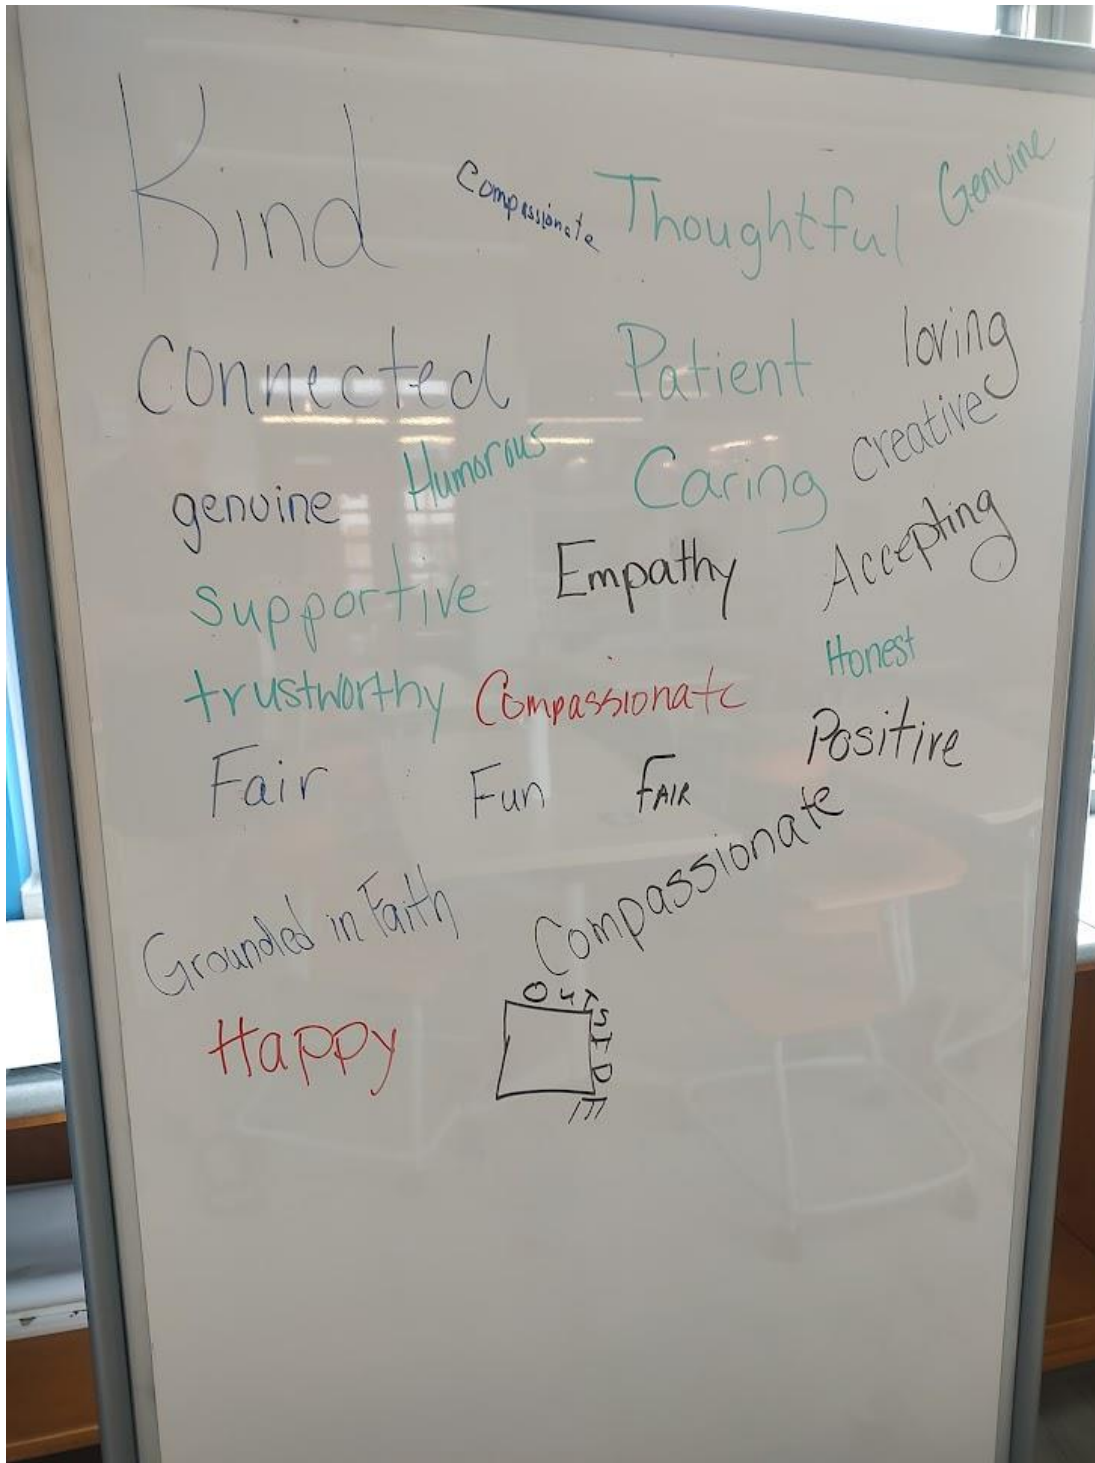 Kind
Compassionate
Thoughtful
Genuine
Connected
Patient
loving
genuine
Humorous
Caring
creative
supportive
Empathy
Accepting
trustworthy
Compassionate
Honest
Fair
Fun
FAIR
Positive
Grounded in Faith
Compassionate
Happy
OUTSIDE